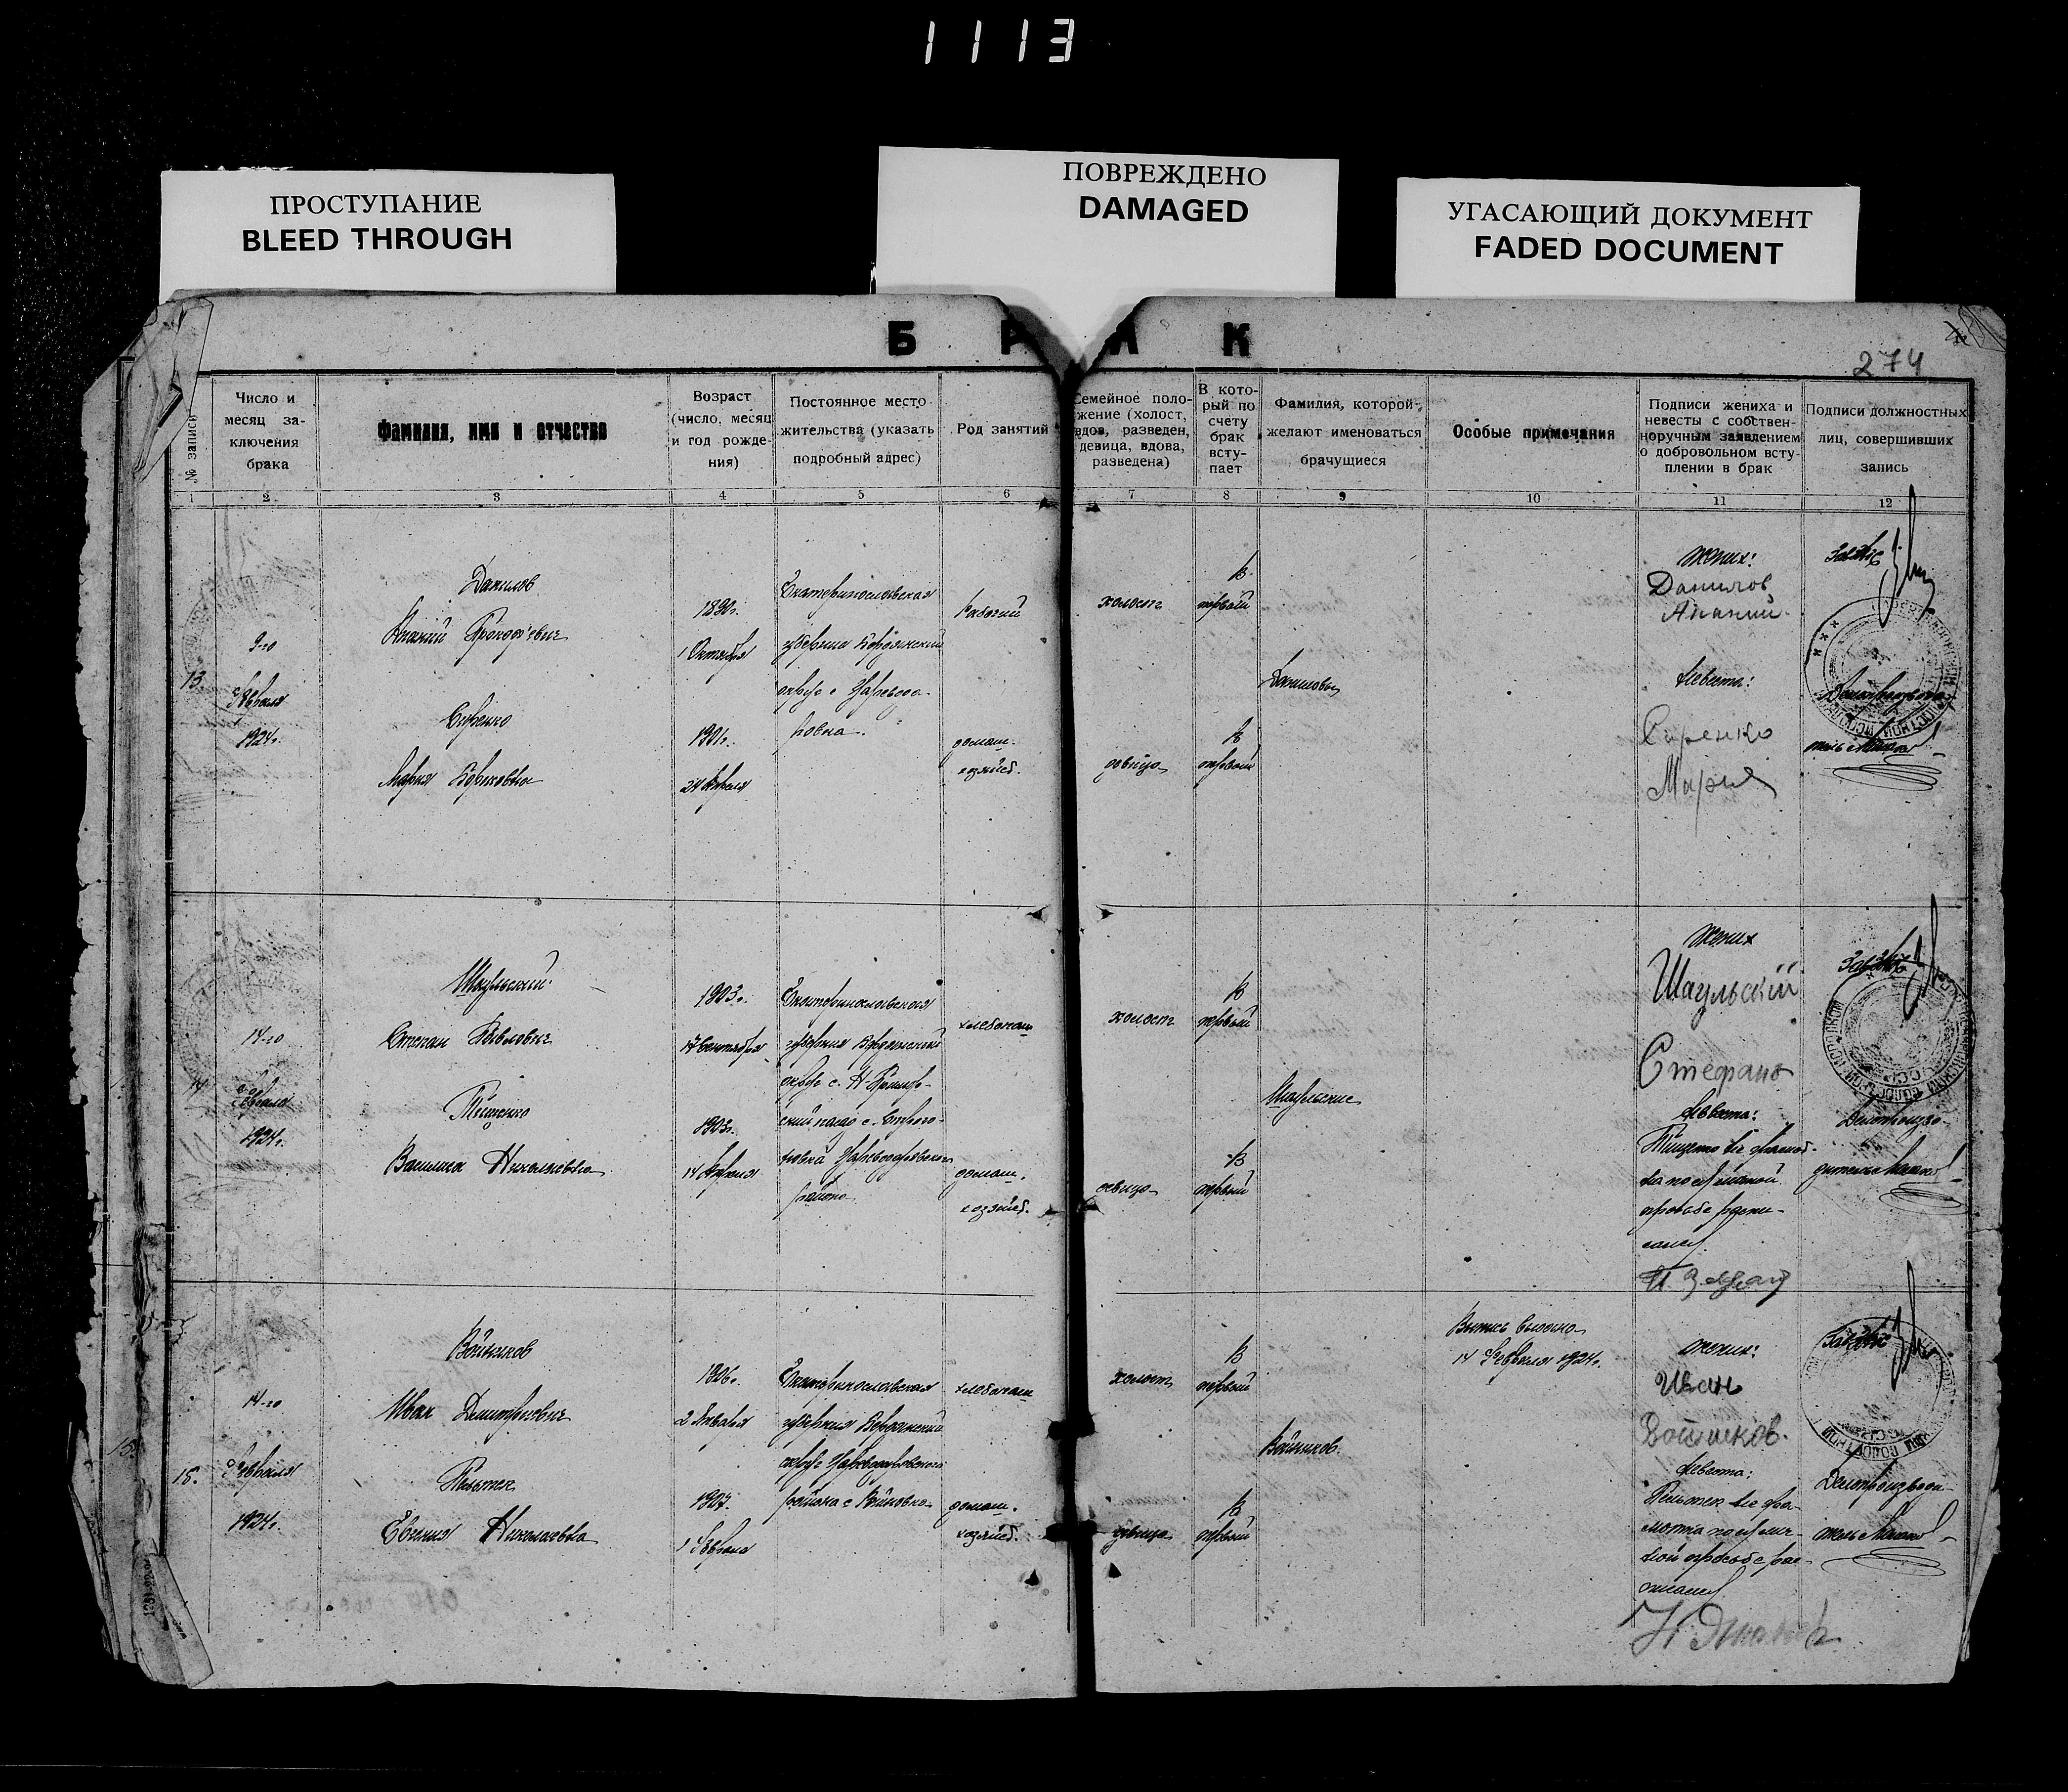 1113
ПРОСТУПАНИЕ
BLEED THROUGH
ПОВРЕЖДЕНО
DAMAGED
УГАСАЮЩИЙ ДОКУМЕНТ
FADED DOCUMENT
БРАК
274
№ записи
Число и
месяц за-
ключения
брака
Фамилия, имя и отчество
Возраст
(число, месяц
и год рожде-
ния)
Постоянное место
жительства (указать
подробный адрес)
Род занятий
Семейное поло-
жение (холост,
вдов, разведен,
девица, вдова,
разведена)
В кото-
рый по
счету
брак
всту-
пает
Фамилия, которой
желают именоваться
брачущиеся
Особые примечания
Подписи жениха и
невесты с собствен-
норучным заявлением
о добровольном всту-
плении в брак
Подписи должностных
лиц, совершивших
запись
1 2 3 4 5 6 7 8 9 10 11 12
13.
9-го
Февраля
1924г.
Данилов
Ананий Прокофьевич
Сиренко
Мария Борисовна
1890г.
1 Октября
1901г.
24 Апреля
Екатеринославская
губерния Бердянский
округ с Царевода-
ровка.
Рабочий
домаш.
хозяйст.
холост
девица
В
первый
В
первый
Даниловы
жених:
Данилов
Ананий.
Невеста:
Сиренко
Мария
Делопроизводи-
14
14-го
Февраля
1924г.
Шаульский
Степан Павлович
Тищенко
Василиса Николаевна
1903г.
17 Сентября
1903г.
14 Апреля
Екатеринославская
губерния Бердянский
округ
района
хлебопаш
домаш.
хозяйст.
холост
девица
В
первый
В
первый
Шаульские
жених
Шаульский
Стефано
Невеста:
Тищенко не грамот-
на по её личной
просьбе распи-
сался
Делопроизво-
дитель
15.
14-го
Февраля
1924г.
Войников
Иван Дмитриевич
Пельтек
Евгения Николаевна
1906г.
2 Января
1907.
1 Февраля
Екатеринославская
губерния Бердянский
округ Царевдаровского
района с
хлебопаш
домаш.
хозяйст.
холост
девица
В
первый
В
первый
Войников.
Выпись выдана
14 Февраля 1924г.
жених:
Иван
Войников.
Невеста:
Пельтек не гра-
мотна по её лич-
ной просьбе рас-
писался
Делопроизводи-
тель